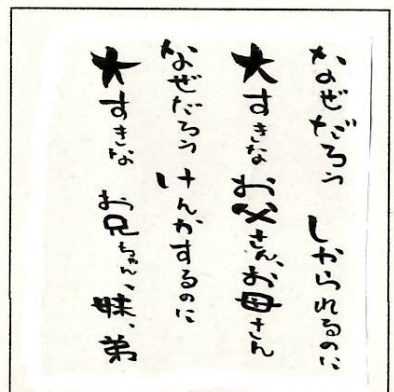 なぜだろう しかられるのに
大すきな お父さん、お母さん
なぜだろう けんかするのに
大すきな お兄ちゃん、妹、弟